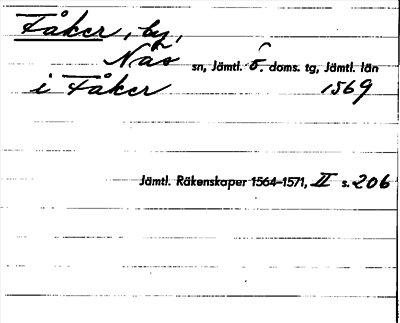 Fåker, by,
Näs sn, Jämtl. ö. doms. tg, Jämtl. län
i Fåker 1569
Jämtl. Räkenskaper 1564–1571, II s. 206